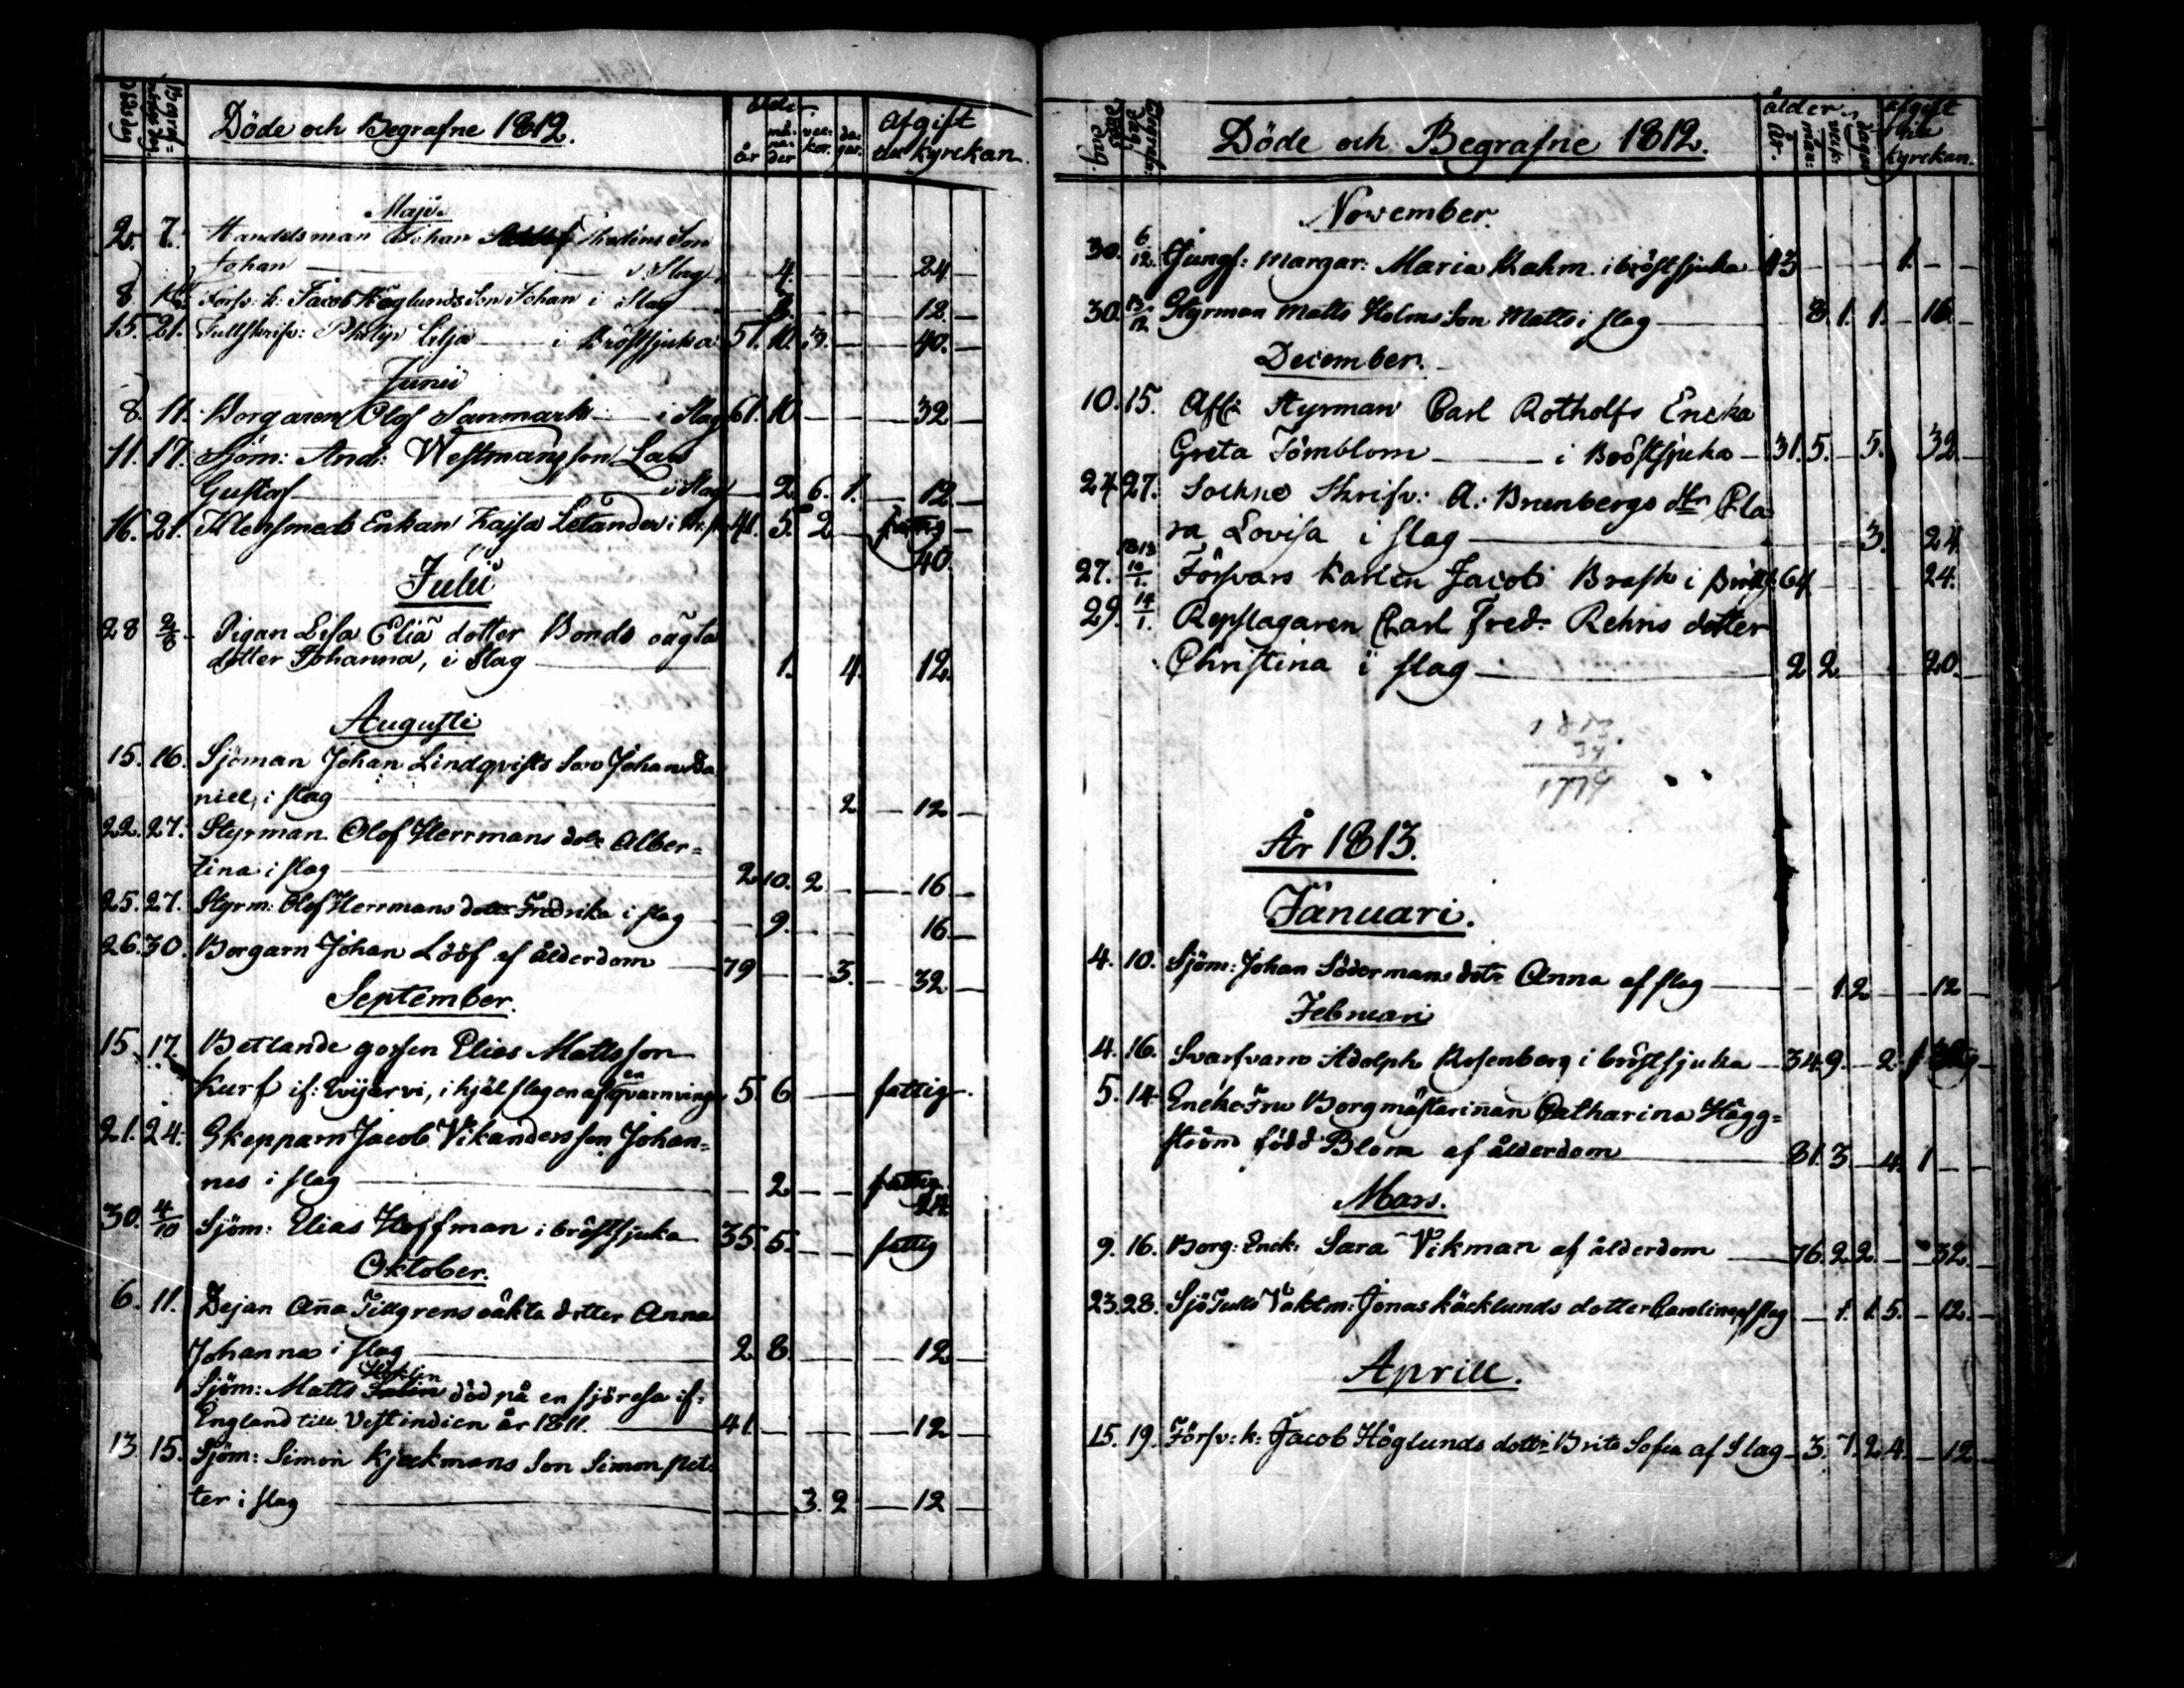 Döds dag
Begraf= nings dag.
Döde och Begrafne 1812.
ålder
år må= na= der vec= kor. da= gar.
Afgift till kyrckan.
Maji
2. 7. Handelsman Johan Thodens Son
Johan — i Slag — 4. — 24 —
8 Försv: k: Jacob Höglunds Son Johan i slag — 12. —
15. 21. Tullskrifv: Philip Lilja — i Bröstsjuka 51. 10. 3. — 40. —
Junii
8. 11. Borgaren Olof Sanmark — i Slag 61. 10. — 32 —
11. 17. Sjöm: And: Westmans son Lars
Gustaf — i Slag — 2. 6. 1. — 12 —
16. 21. Klensmeds Enkan Kajsa Letander i 41. 5. 2 — fattig —
40.
Julii
28 2/8 Pigan Lisa Elia dotter Bonds oägta
dotter Johanna, i Slag — 1. 4. 12.
Augusti
15. 16. Sjöman Johan Lindqvists Son Johan Da
niel, i slag — 2 — 12 —
22. 27. Styrman Olof Herrmans dotr Alber=
tina i slag — 2 10. 2 — 16 —
25. 27. Styrm: Olof Herrmans dotter Fredrika i slag — 9. — 16. —
26. 30. Borgarn Johan Lööf af ålderdom — 79 — 3. — 32 —
September.
15. 17. Betlande gossen Elias Mattsson
Kurf if: Evijärvi, i hjäl slagen af en qvarnvinge 5. 6 — fattig.
21. 24. Skepparn Jacob Vikanders son Johan=
nes i slag — 2 — fattig
24.
30. 4/10 Sjöm: Elias Hoffman i bröstsjuka 35. 5. — fattig
Oktober.
6. 11. Dejan Aña Tillgrens oäkta dotter Anna
Johanna i slag — 2. 8. — 12 —
Sjöm: Matts död på en sjöresa if:
England till Vestindien år 1811. — 41. — 12 —
13. 15. Sjöm: Simon Kjeckmans Son Simon Pet=
ter i slag — 3. 2 — 12 —
Döds dag.
Begrafn: dag.
Döde och Begrafne 1812.
ålder
År. mån: veck: dagar
afgift till kyrckan.
November.
30. 6/12 Jungf: Margar: Maria Rahm i bröstsjuka 43 — 1. — —
30. 13/12 Styrman Matts Holms Son Matts i slag — 8. 1. 1. — 16. —
December.
10. 15. Afl: Styrman Carl Rotholfs Encka
Greta Törnblom — i Bröstsjuka — 31. 5. — 5. 32. —
24. 27. Sockne Skrifv: A: Brunbergs dtr Cla=
ra Lovisa i slag — 3. 24.
1813
27. 10/1. Försvars karlen Jacob Brask i Bröst 64 24.
29. 14/1. Repslagaren Carl Fred: Rehns dotter
Christina i slag — 2. 2 20. —
1813.
34
1779
År 1813.
Januari.
4. 10. Sjöm: Johan Södermans dotr Anna af slag — 1. 2 — 12 —
Februari
4. 16. Svarfvarn Adolph Rosenberg i bröstsjuka — 34. 9. — 2.
5. 14. Encke Fru Borgmästariñan Catharina Hägg=
ström född Blom af ålderdom — 81. 3. — 4. 1 — —
Mars.
9. 16. Borg: Enck: Sara Vikman af ålderdom — 76. 2. 2. — 32. —
23. 28. Sjö Tulls Vaktm: Jonas Käcklunds dotter Carolina af slag — 1. 1. 5. — 12. —
Aprill.
15. 19. Försv: k: Jacob Höglunds dottr Brita Sofia af Slag — 3. 7. 2. 4. — 12 —